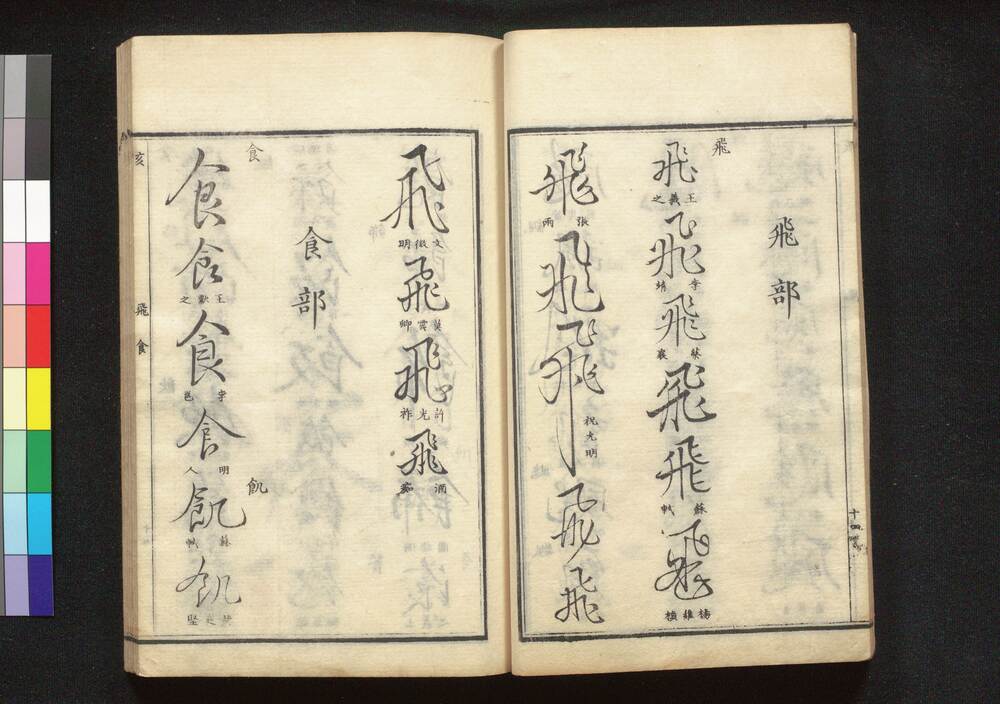 飛部
飛
飛
王羲之
飛
李靖
飛
蔡襄
飛
飛
蘇軾
飛
楊維楨
飛
張雨
飛
飛
祝允明
飛
飛
飛
文徵明
飛
莫雲卿
飛
許光祚
飛
酒癡
食部
食
食
食
王獻之
食
李邕
食
明人
飢
飢
蘇軾
飢
亥
飛食